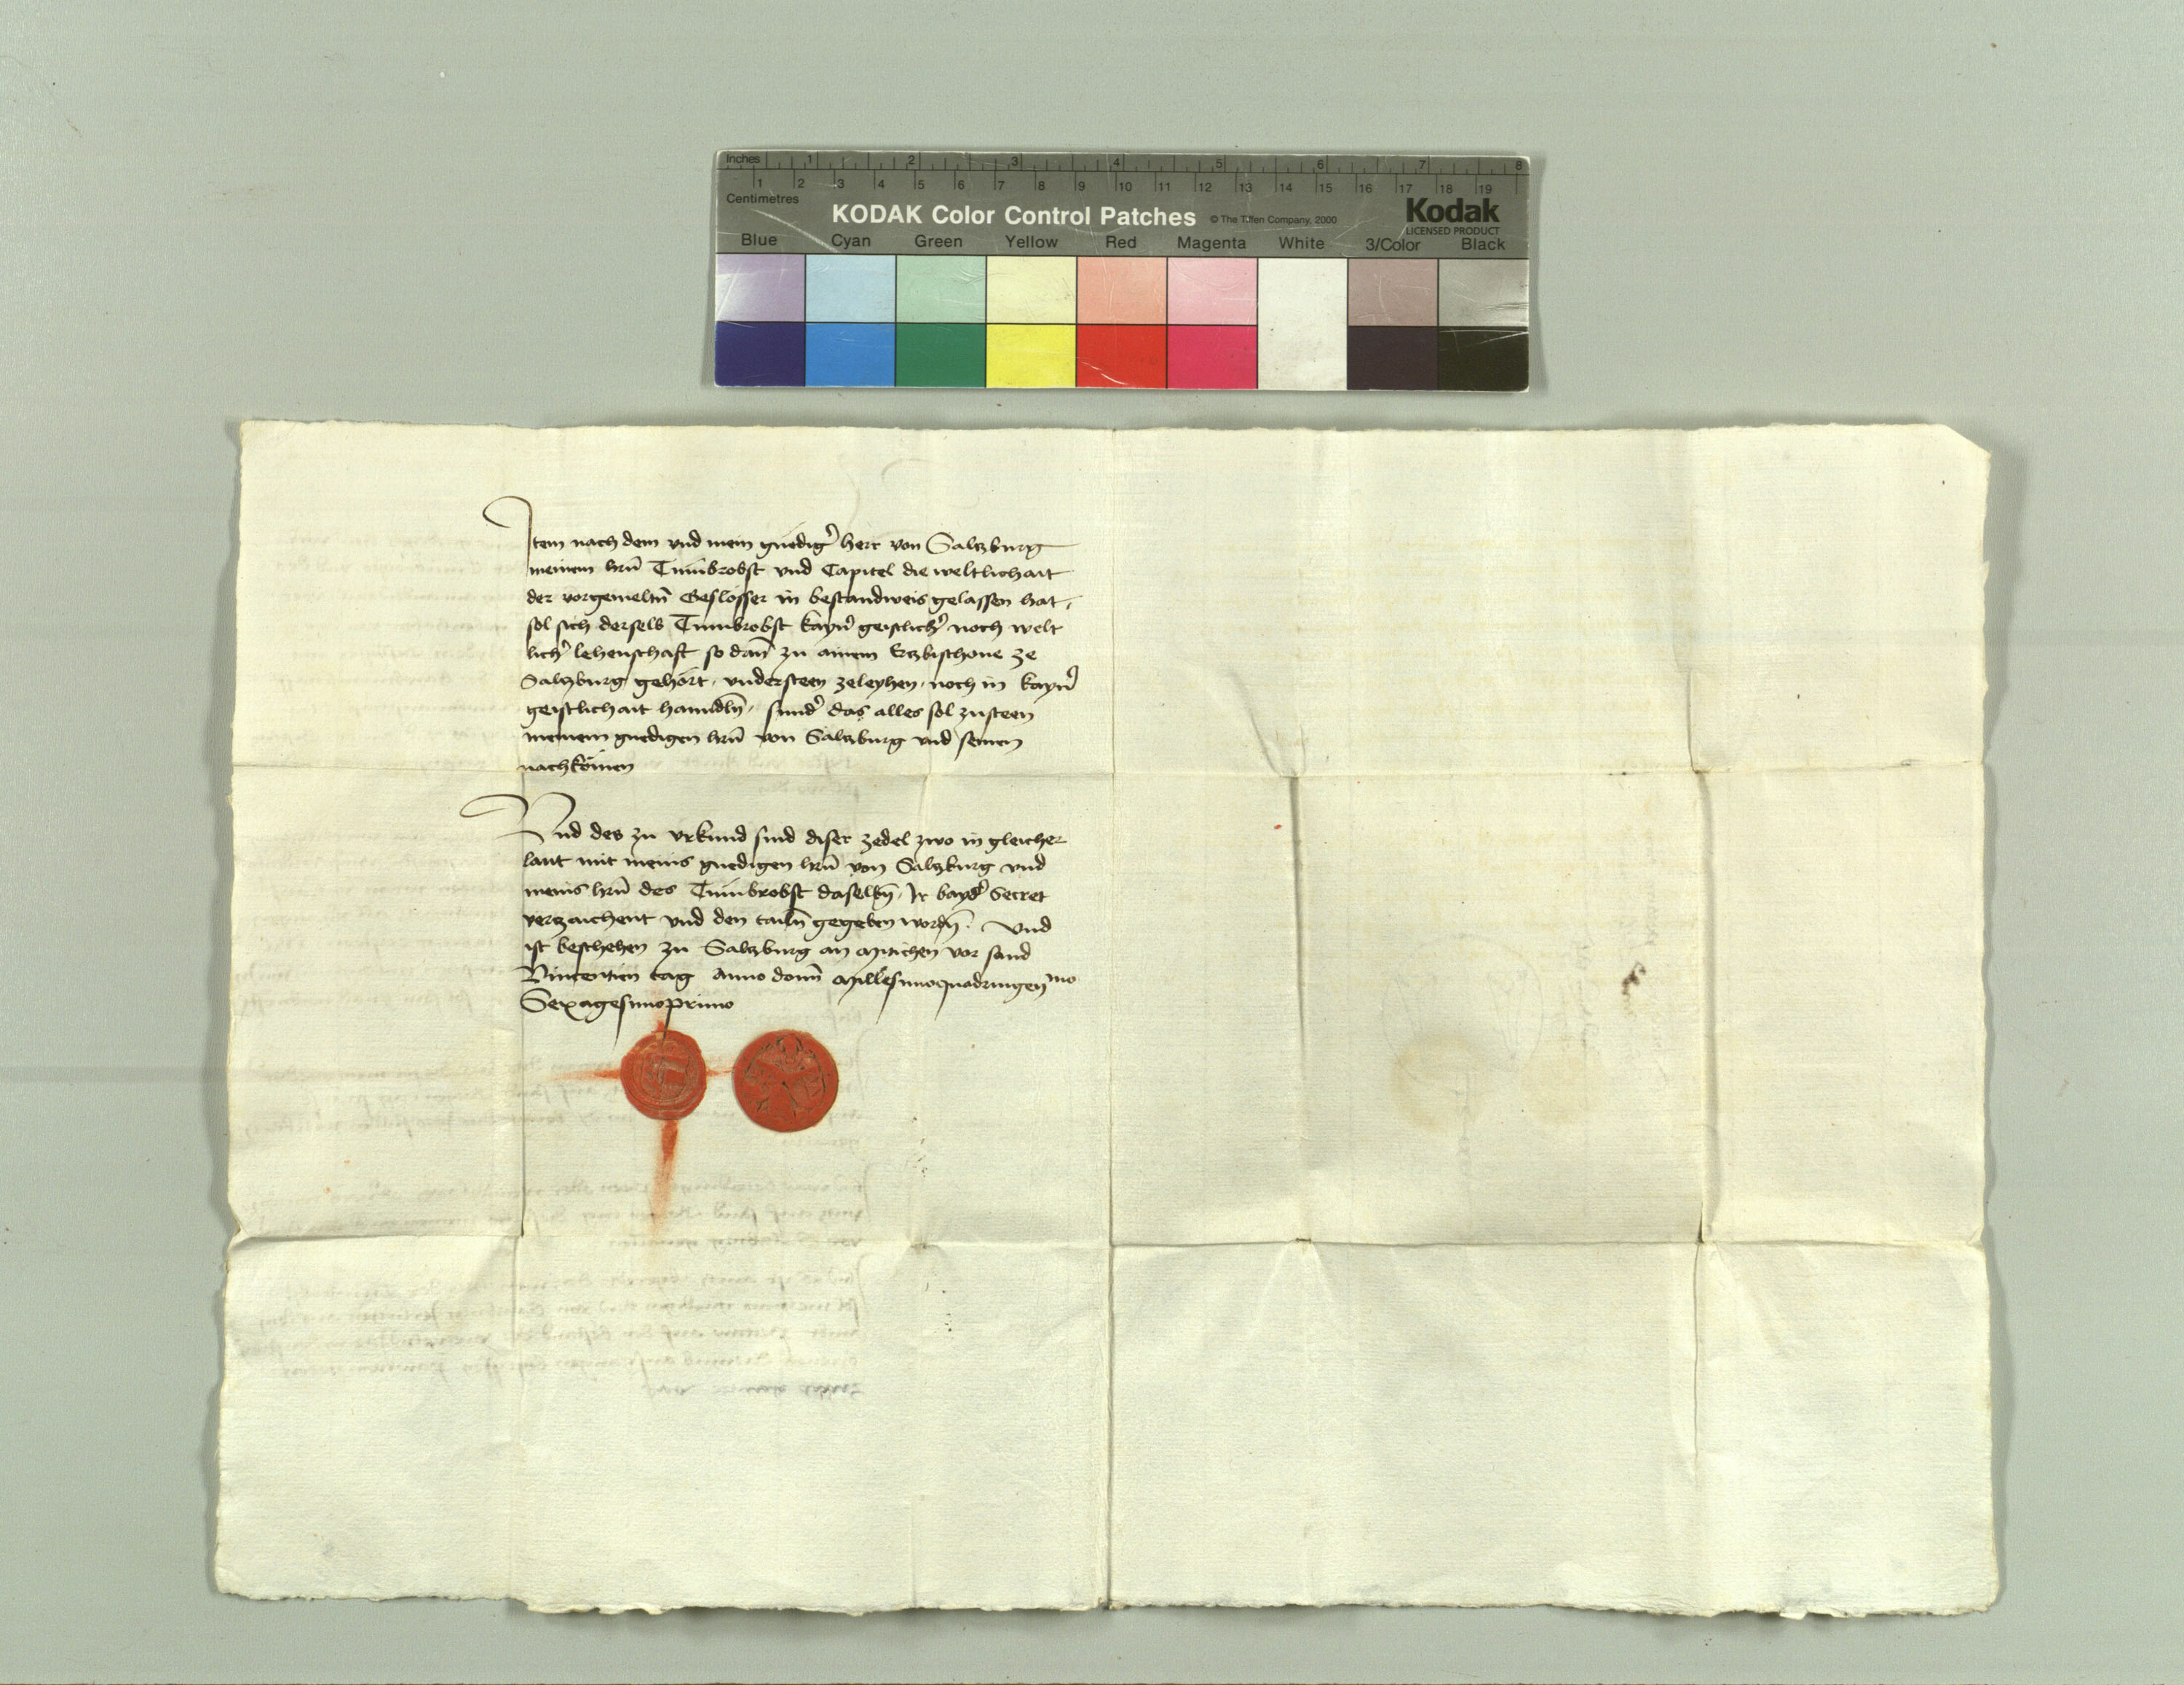 Inches 1 2 3 4 5 6 7 8
1 2 3 4 5 6 7 8 9 10 11 12 13 14 15 16 17 18 19
Centimetres
KODAK Color Control Patches © The Tiffen Company, 2000 Kodak
LICENSED PRODUCT
Blue Cyan Green Yellow Red Magenta White 3/Color Black
Item nach dem vnd mein gnedigʼ herr von Saltzburg
meinem hrn̄ Tumbrobst vnd Capitel die weltlichait
der vorgemeltn̄ Geslösser in bestandweis gelassen hat,
sol sich derselb Tumbrobst kaynʼ geistlichʼ noch welt
lichʼ lehenschaft so dan̄ zu ainem Ertzbischoue ze
Saltzburg gehört, vndersteen zeleyhen, noch in kaynʼ
geistlichait hanndln̄, sundʼ das alles sol zusteen
meinem gnedigen hrn̄ von Saltzburg vnd seinen
nachkömen
Vnd des zu vrkund sind diser zedel zwo in gleicher
laut mit meins gnedigen hrn̄ von Saltzburg vnd
meins hrn̄ des Tumbrobst daselbn̄, Ir baydʼ Secret
vertzaichent vnd den tailn̄ gegeben wordn̄. Vnd
ist beschehen zu Saltzburg an Mitichen vor sand
Vincentien tag Anno domī Millesimoquadringenᵐᵒ
Sexagesimoprimo